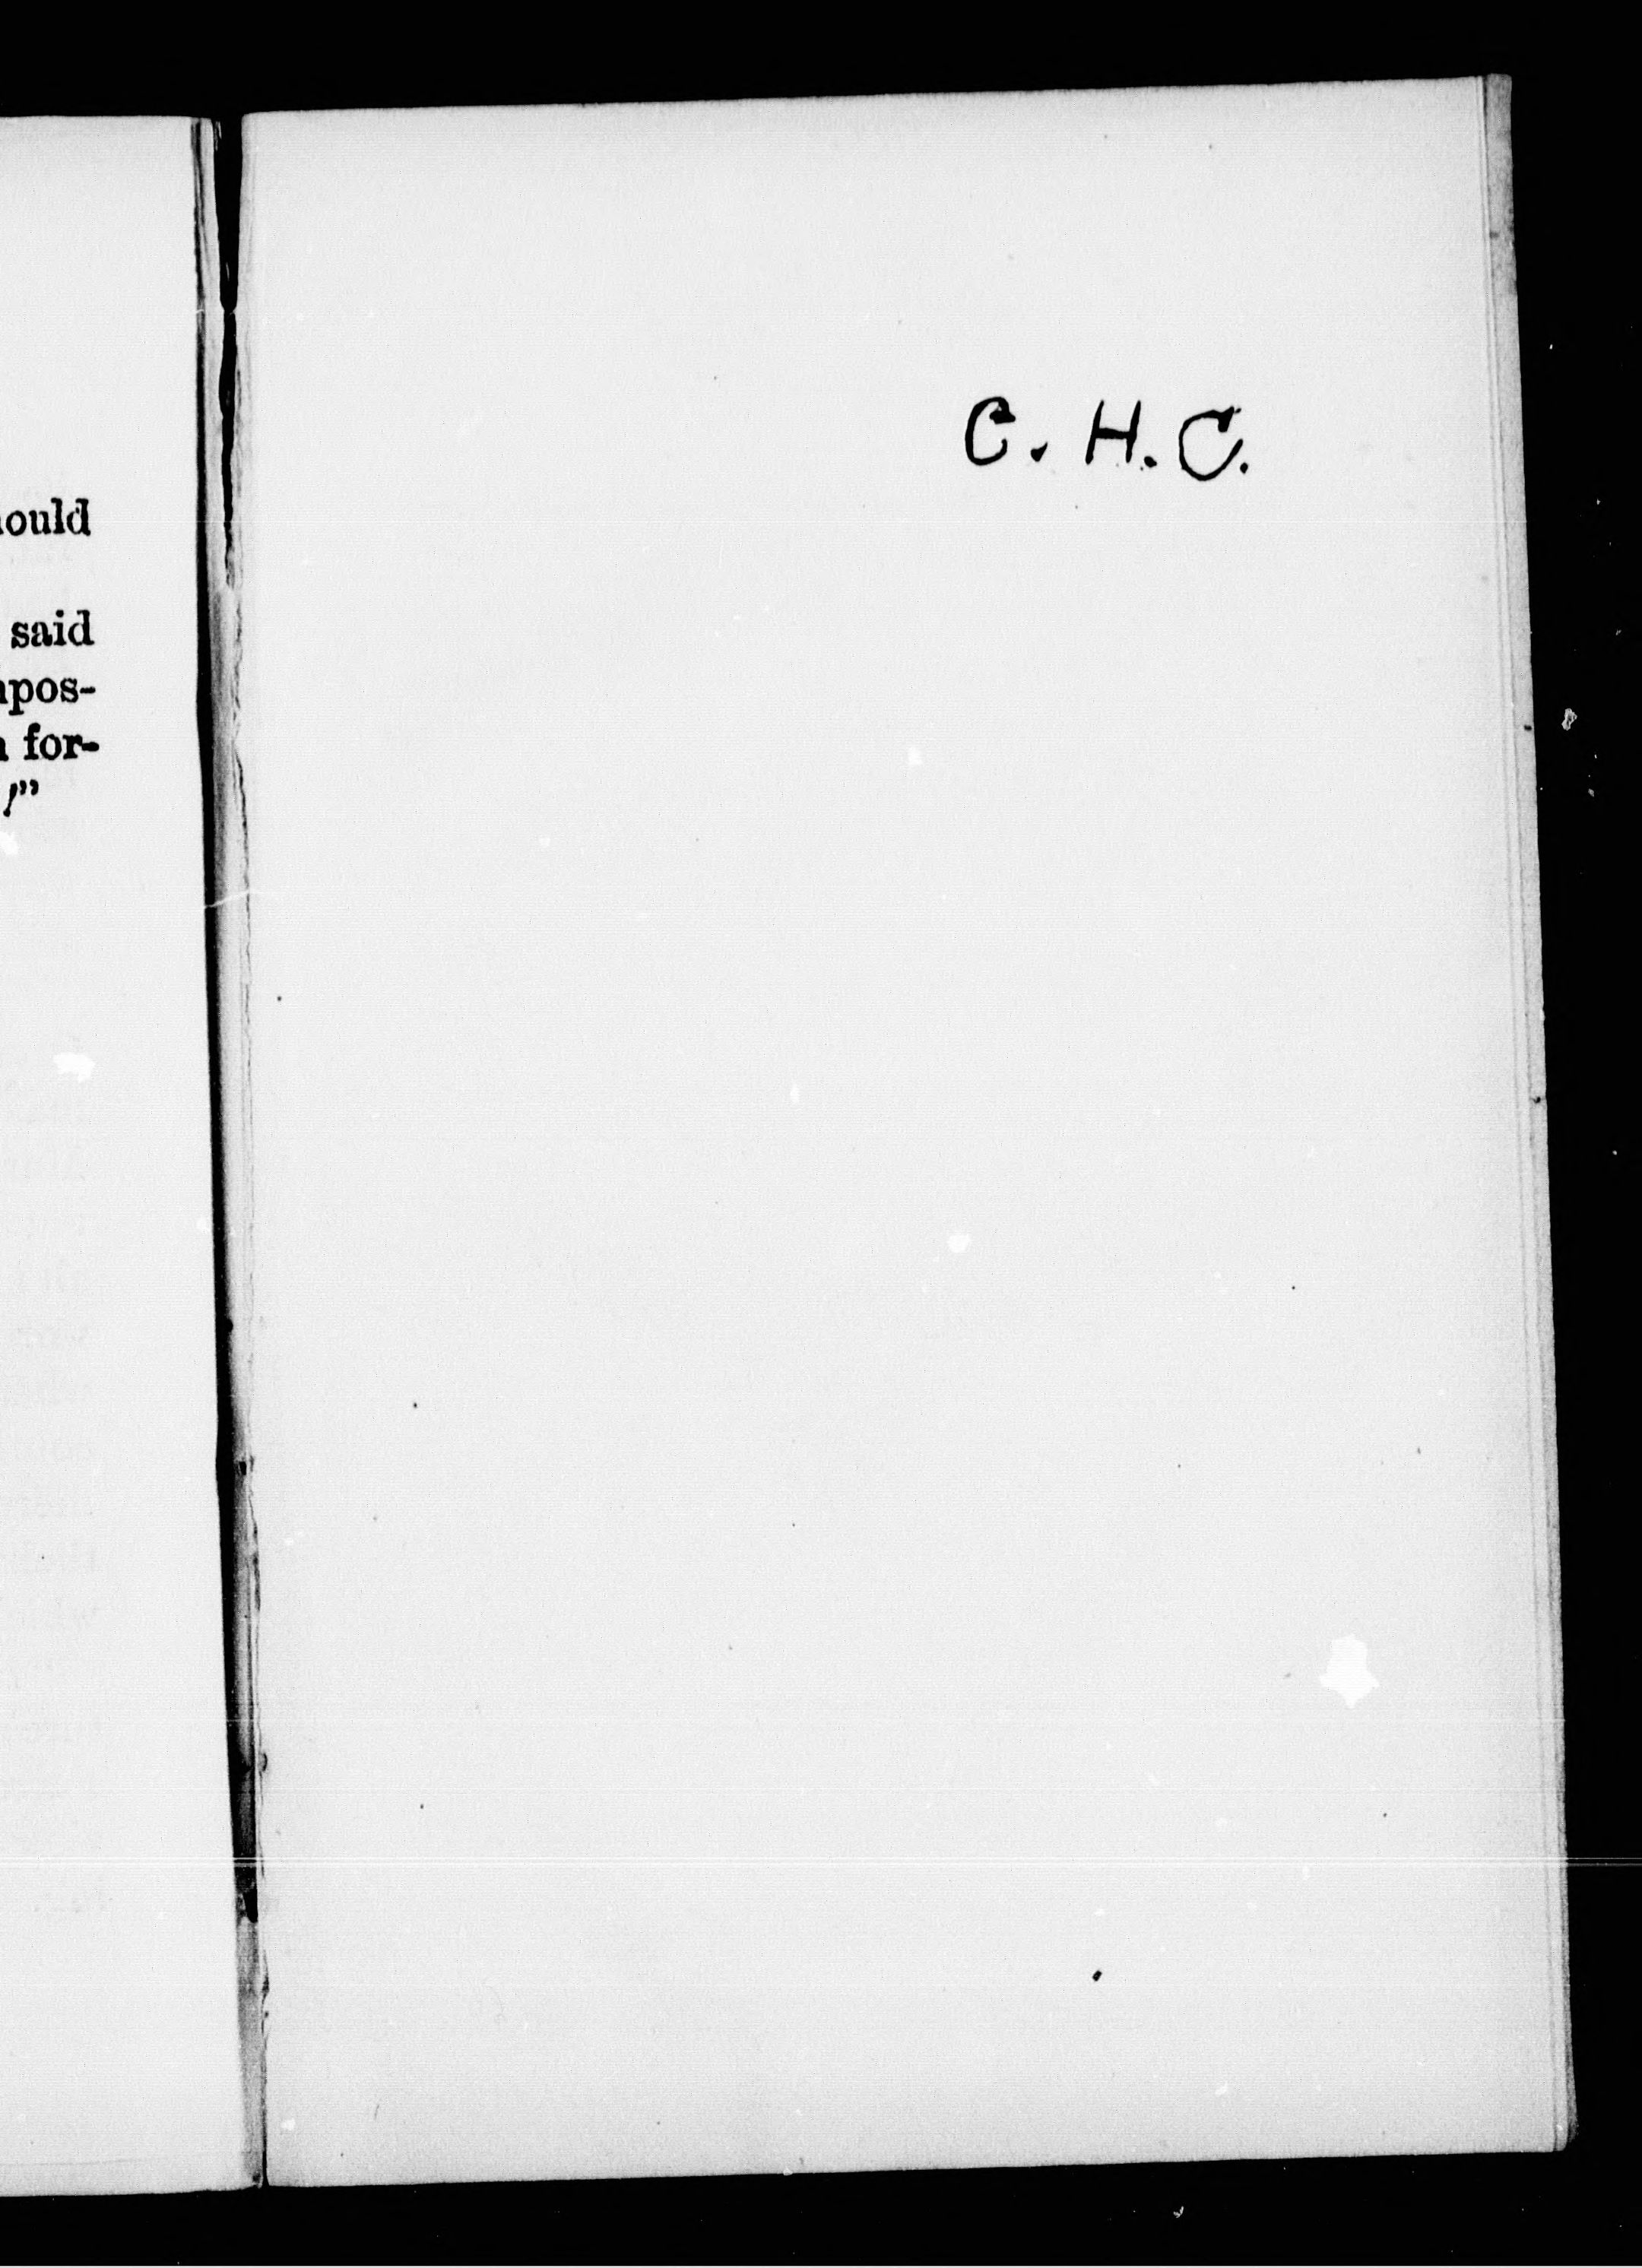 ould
said
pos-
for-
!”
C. H. C.